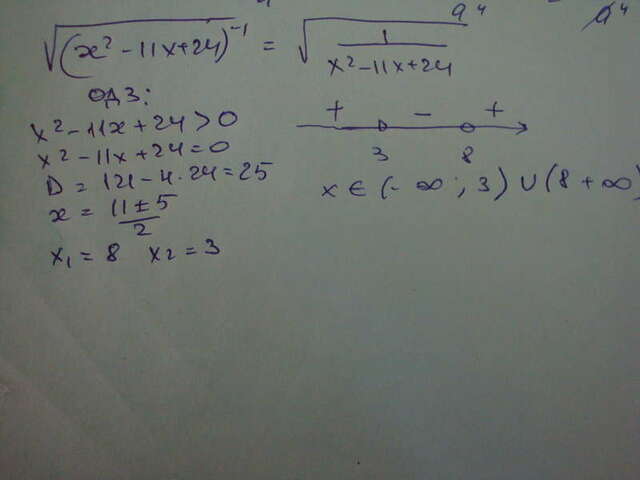 a⁴ a⁴
√(x² - 11x + 24)⁻¹ = √1/(x² - 11x + 24)
ОДЗ:
x² - 11x + 24 > 0
x² - 11x + 24 = 0
D = 121 - 4·24 = 25
x = (11 ± 5)/2
x₁ = 8 x₂ = 3
+ - +
3 8
x ∈ (-∞; 3) ∪ (8 +∞)